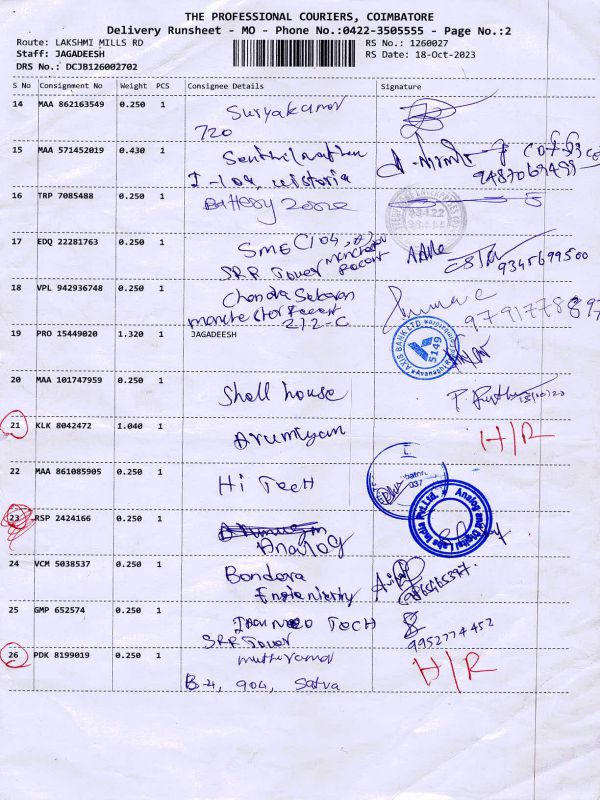 THE PROFESSIONAL COURIERS, COIMBATORE
Delivery Runsheet - MO - Phone No.:0422-3505555 - Page No.:2
Route: LAKSHMI MILLS RD RS No.: 1260027
Staff: JAGADEESH RS Date: 18-Oct-2023
DRS No.: DCJB126002702
S No Consignment No Weight PCS Consignee Details Signature
14 MAA 862163549 0.250 1 Suryakumar
720
15 MAA 571452019 0.430 1 Senthilnathan
9487069499
16 TRP 7085488 0.250 1 Battery Zone
17 EDQ 22281763 0.250 1 SME C104,
Manchester
SRR Tower Recent 9345699500
18 VPL 942936748 0.250 1 Chandra Sekaran
Manchester Recent
212-C
19 PRO 15449020 1.320 1 JAGADEESH
AXIS BANK LTD
5149
20 MAA 101747959 0.250 1 Shell house
21 KLK 8042472 1.040 1 Arumiyam H/R
22 MAA 861085905 0.250 1 Hi Tech
037
23 RSP 2424166 0.250 1 Analog
Analog and Digital Labs India Pvt. Ltd.
24 VCM 5038537 0.250 1 Bondora
25 GMP 652574 0.250 1 TECH
SRR Tower 9952774452
26 PDK 8199019 0.250 1 H/R
B-4, 904, Satva